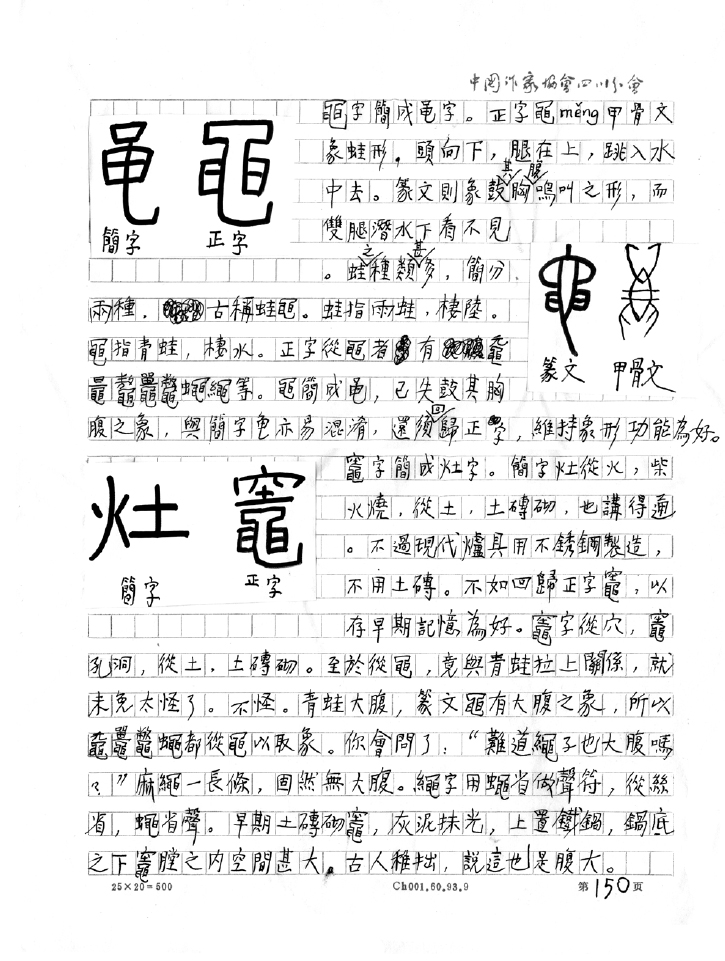 中國作家協會四川分會
黽字簡成黾字。正字黽měng甲骨文
象蛙形。頭向下，腿在上，跳入水
中去。篆文則象鼓其胸腹鳴叫之形，而
雙腿潛水下看不見
。蛙之種類甚多，簡分
兩種。古稱蛙黽。蛙指雨蛙，棲陸。
黽指青蛙，棲水。正字從黽者有鼀
鼂鼇鼉鼈蠅繩等。黽簡成黾，已失鼓其胸
腹之象，與簡字龟亦易混淆，還須回歸正字，維持象形功能為好。
簡字
正字
篆文
甲骨文
竈字簡成灶字。簡字灶從火，柴
火燒，從土，土磚砌，也講得通
。不過現代爐具用不銹鋼製造，
不用土磚。不如回歸正字竈，以
存早期記憶為好。竈字從穴，竈
孔洞，從土，土磚砌。至於從黽，竟與青蛙拉上關係，就
未免太怪了。不怪。青蛙大腹，篆文黽有大腹之象，所以
鼀鼉鼈蠅都從黽以取象。你會問了："難道繩子也大腹嗎
？"麻繩一長條，固然無大腹。繩字用蠅省做聲符，從絲
省，蠅省聲。早期土磚砌竈，灰泥抹光，上置鐵鍋，鍋底
之下竈膛之内空間甚大。古人稚拙，説這也是腹大。
灶
竈
簡字
正字
25×20=500
Ch001.60.93.9
第150頁